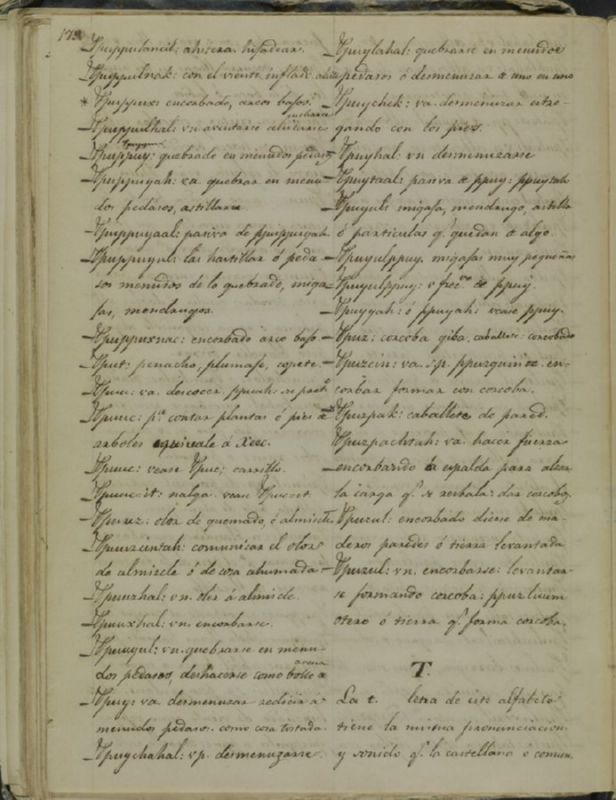 173
Ppuppulancil: ahitera. hipadera.
Ppuppulnak: con el vientre inflado. ahito
* Ppuppuxs encorbado, arcos bajos.
Ppuppulhal: vn aventarse ahitarse
hincharse
Ppuppuy: quebrado en menudos pedazos
Ppuppuyah: va quebrar en menu
dos pedazos, astillarse
Ppuppuyaal: pasiva de ppuppuyah
Ppuppuyul: las hastillas ó peda
sos menudos de lo quebrado, miga
jas, mendrugos.
Ppuppuxnac: encorbado arco bajo
Pput: penacho, plumaje, copete.
Ppuu: va. descocer ppuuh. su pret.
Ppuuc: pa contar plantas ó pies de
arboles equivale á Xeec.
Ppuuc: vease Ppuc; carrillo.
Ppuuc it: nalga. vease Ppuc it
Ppuuz: olor de quemado, ó almizcle
Ppuuzcintah: comunicar el olor
de almizcle ó de cosa ahumada
Ppuuzhal: vn. oler á almizcle.
Ppuuxhal: vn. encorbarse.
Ppuuyul: vn. quebrarse en menu-
dos pedazos, deshacerse como bollo de
arena
Ppuy: va desmenuzar reducir á
menudos pedazos. como cosa tostada
Ppuychahal: vp. desmenuzarse
Ppuylahal: quebrarse en menudos
pedazos ó desmenuzar de uno en uno
Ppuychek: va. desmenuzar estre-
gando con los pies.
Ppuyhal vn desmenuzarse
Ppuytaal: pasiva de ppuy: ppuytah
Ppuyul: migaja, mendrugo, astilla
ó particulas q.e quedan de algo.
Ppuyulppuy. migajas muy pequeñas
Ppuyulppuy: v frec.vo de ppuy.
Ppuyyah: ó ppuyah: vease ppuy.
Ppuz: corcoba giba, caballete: corcobado
Ppuzcin: va. en-
corbar formar con corcoba.
Ppuzpak: caballete de pared.
Ppuzpachtah: va. hacer fuerza
encorbando la espalda para alzar
la carga q.e se resbala: dar corcobos
Ppuzul: encorbado dicese de ma-
deros paredes ó tierra levantada
Ppuzul: vn. encorbarse: levantar-
se formando corcoba: ppuzluum
otero ó tierra q.e forma corcoba.
T.
La t. letra de este alfabeto
tiene la misma pronunciacion
y sonido q.e la castellana ó comun.